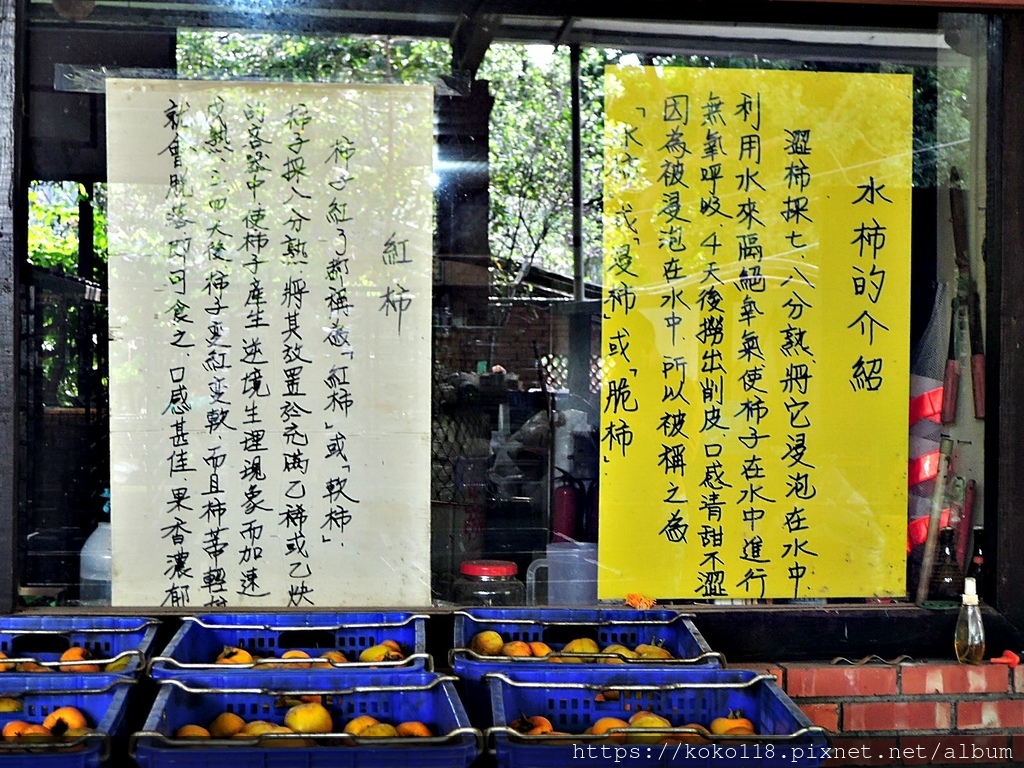 水柿的介紹
澀柿採七、八分熟、將它浸泡在水中
利用水來隔絕氧氣使柿子在水中進行
無氧呼吸、4天後撈出削皮、口感清甜不澀
因為被浸泡在水中、所以被稱之為
「水柿」或「浸柿」或「脆柿」
紅柿
柿子紅了都稱做「紅柿」或「軟柿」、
柿子採八分熟、將其放置於充滿乙稀或乙炔
的容器中、使柿子產生逆境生理現象而加速
成熟、三四天後、柿子變紅變軟、而且柿蒂輕
就會脫落、即可食之、口感甚佳、果香濃郁
https://koko118.pixnet.net/album